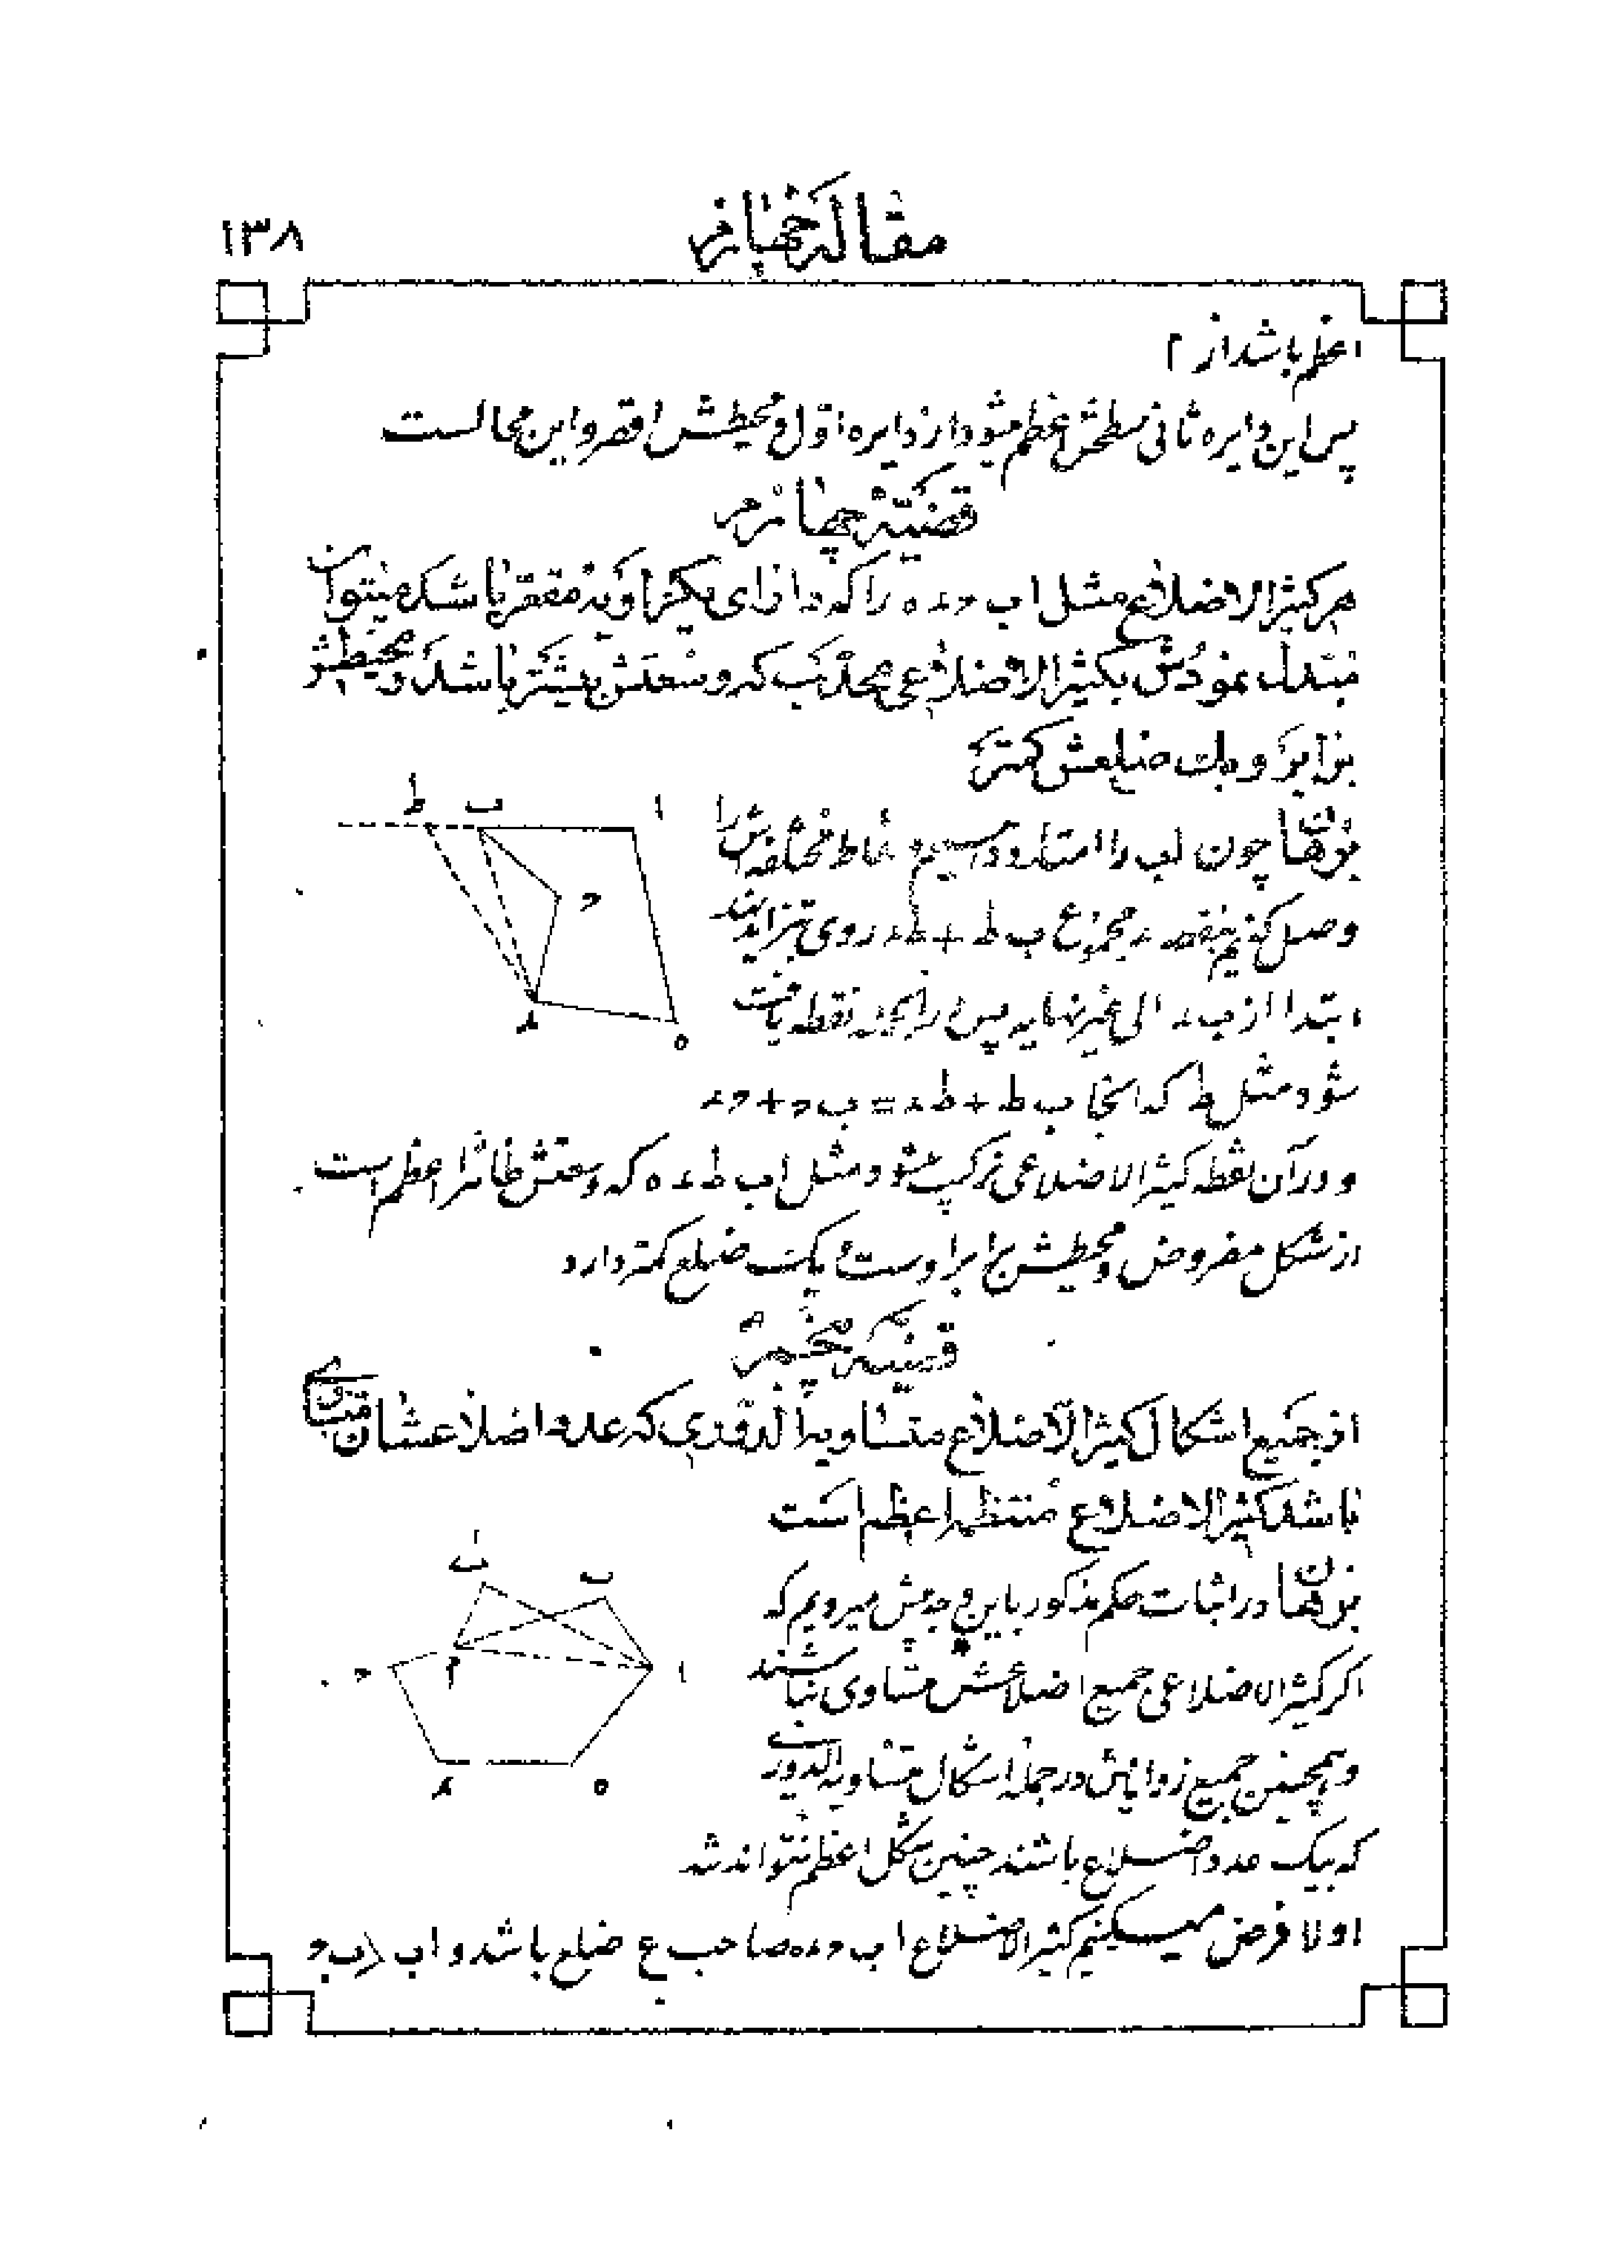 ۱۳۸
مقاله چهارم
اعظم باشد از م
پس این دایره ثانی سطحش اعظم میشود از دایره اول و محیطش اقصر و این محالست
قضیّه چهارم
هر کثیر الاضلاع مثل ا ب ح د ه را که دارای یک زاویه مقعّر باشد میتوان
مبتدل نمودش بکثیر الاضلاعی محدّب که وسعتش بیشتر باشد و محیطش
برابر و یک ضلعش کمتر
برهان چون اب را امتداد دهیم و نقاط مختلفه‌اش را
وصل کنیم بنقطه د مجموع ب ط + ط د روی بتزایدند
ابتدا از ب د الی غیر نهایه پس در اینجا نقطه یافت
شود مثل ط که اینجا ب ط + ط د = ب ح + ح د
و در آن نقطه کثیر الاضلاعی ترکیب شود مثل ا ب ط د ه که وسعتش ظاهرا اعظم است
از شکل مفروض و محیطش برابر اوست یک ضلع کمتر دارد
قضیّه پنجم
از جمیع اشکال کثیر الاضلاع متساویة الدوری که عدد اضلاعشان مساوی
باشد کثیر الاضلاع منتظم اعظم است
برهان در اثبات حکم مذکور باین وجه پیش میرویم که
اگر کثیر الاضلاعی جمیع اضلاعش متساوی نباشند
و همچنین جمیع زوایایش در جمله اشکال متساویة الدوری
که بیک عدد اضلاع باشند چنین شکل اعظم نتواند شد
اولا فرض میکنیم کثیر الاضلاع ا ب ح د ه صاحب ع ضلع باشد و اب > ب ح
ط
ب
ا
ح
د
ه
ب
ب
ا
م
ح
د
ه